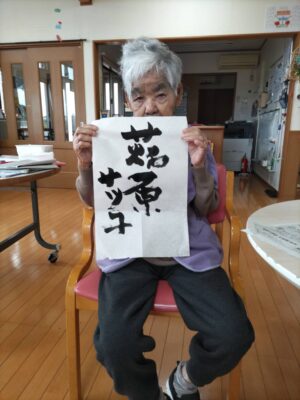 原
サツ子